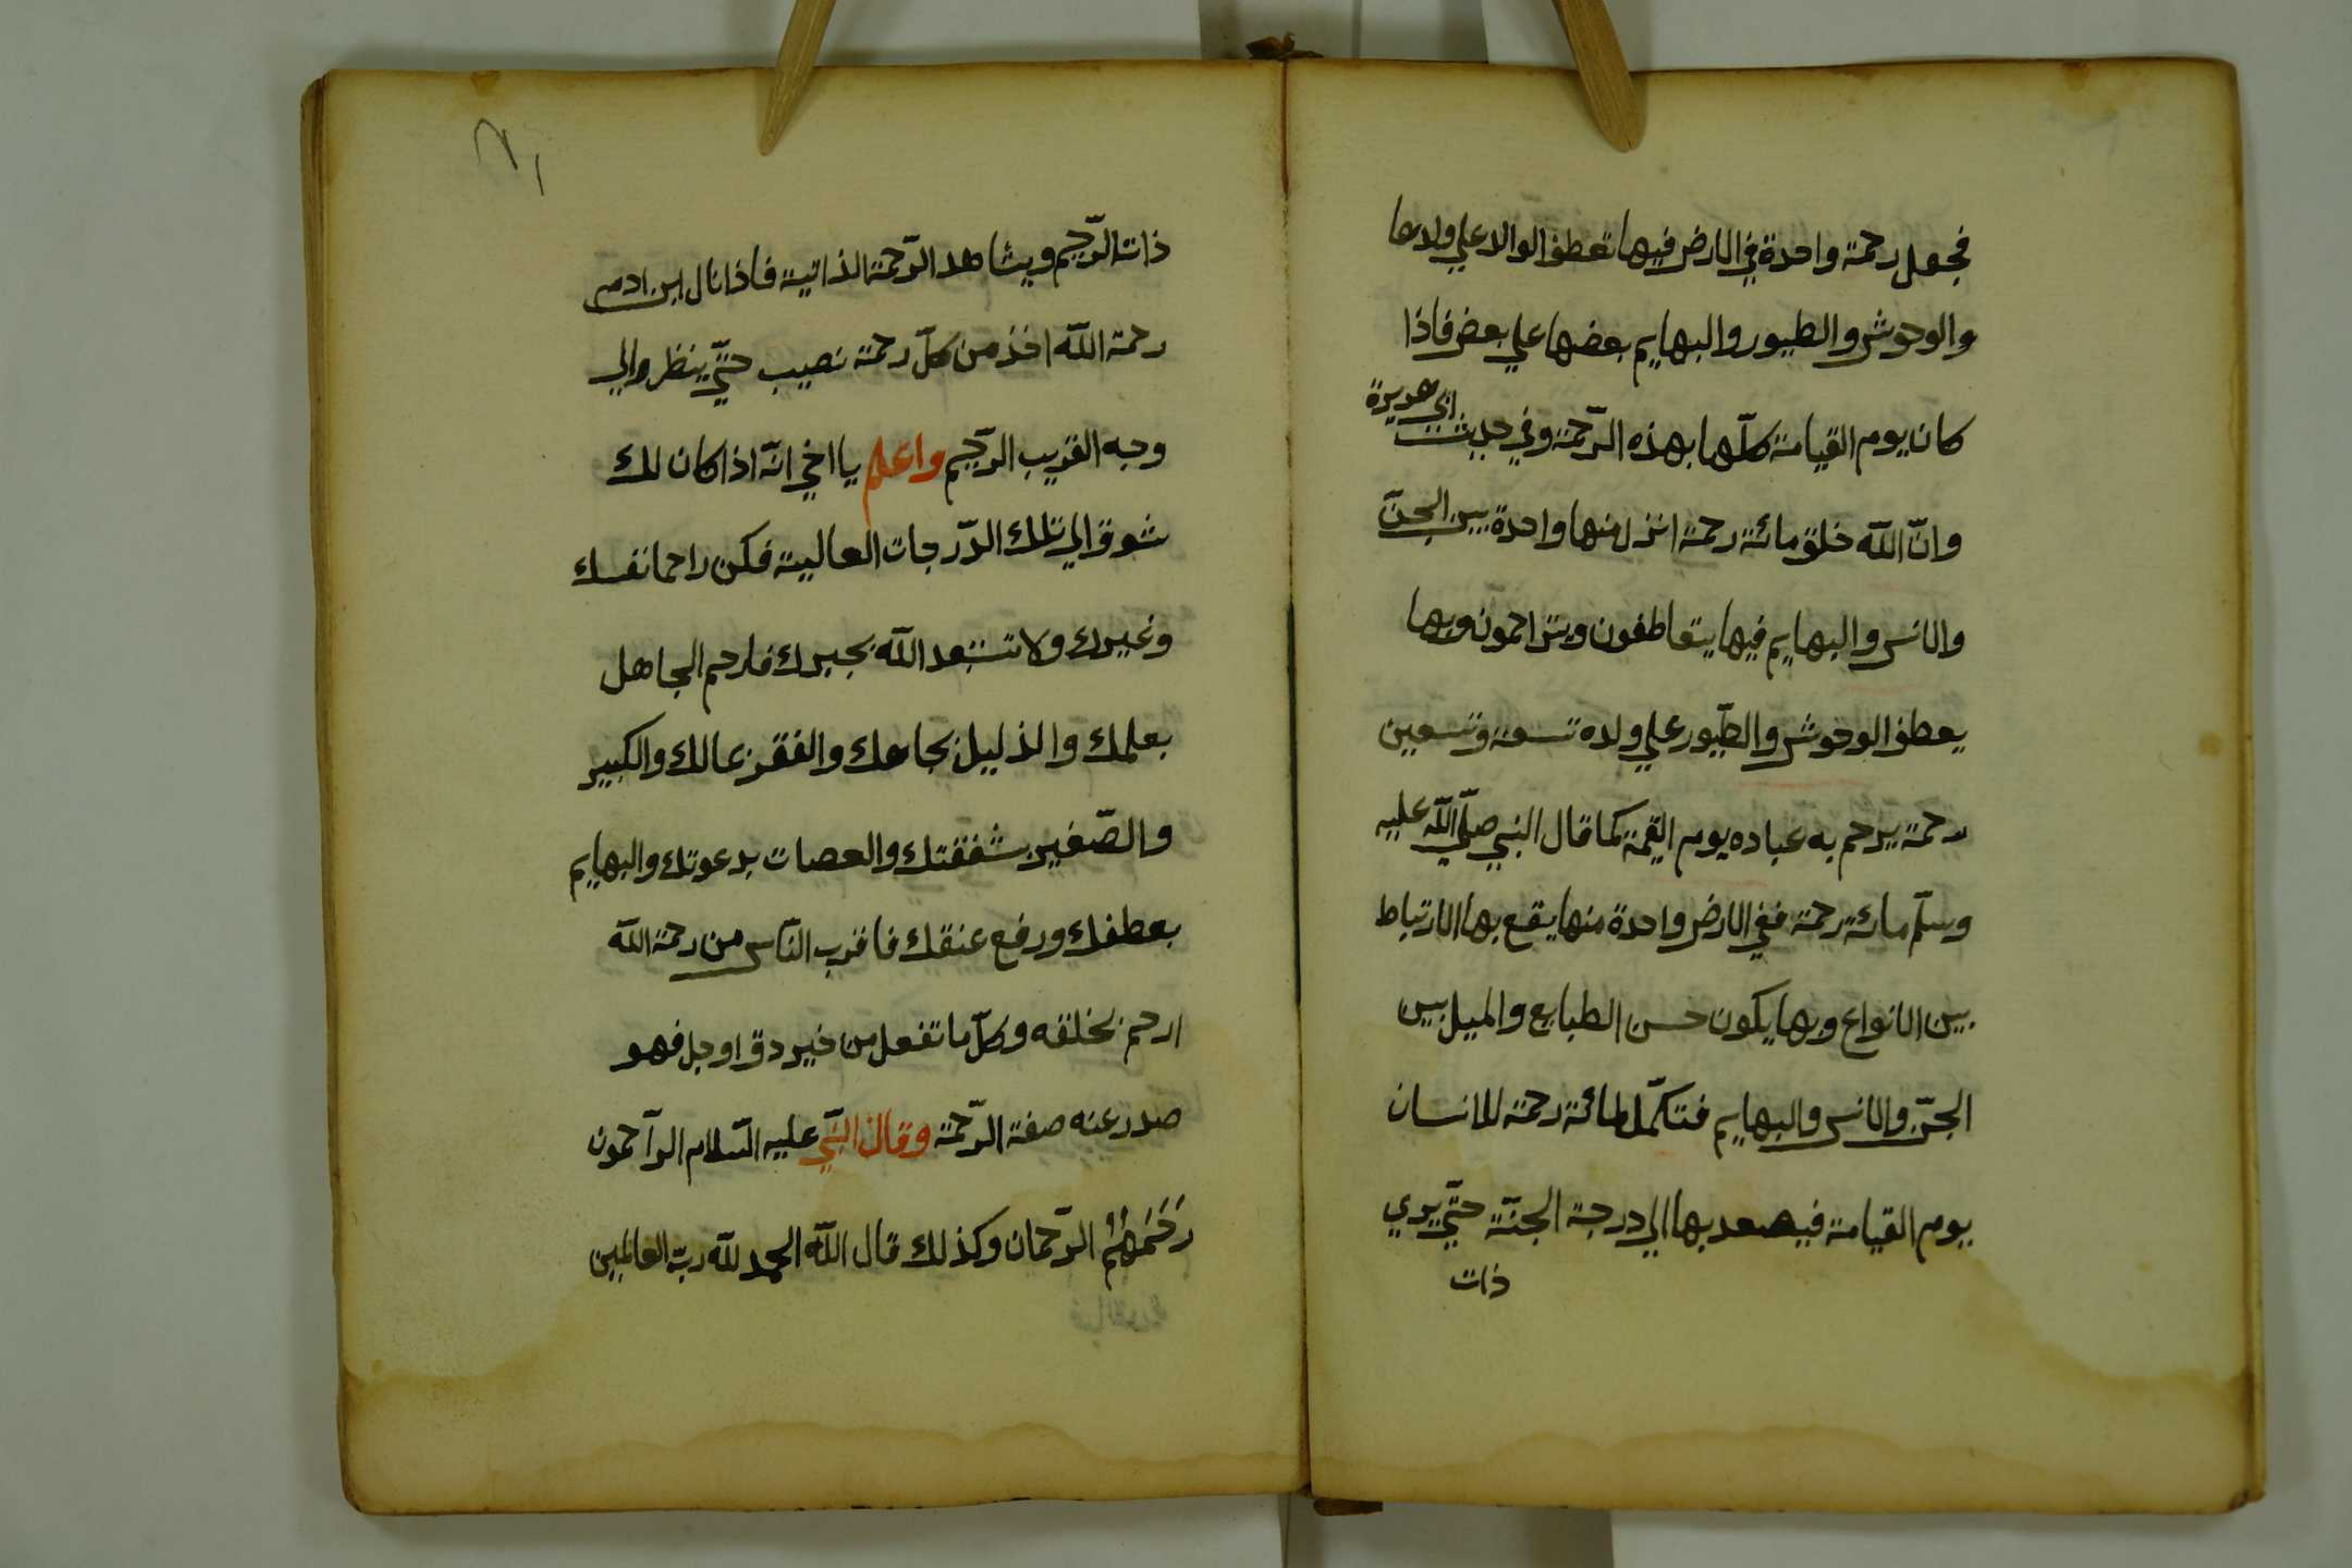 فجعل رحمة واحدة في الارض فيها تعطف الوالا علي ولدها
والوحوش والطيور والبهايم بعضها علي بعض فاذا
كان يوم القيامة كلّها بهذه الرّحمة وفي حديث ابي هريرة
وانّ اللّه خلق مائة رحمة انزل منها واحدة بين الجنّ
والانس والبهايم فيها يتعاطفون ويتراحمون وبها
يعطف الوحوش والطّيور علي ولده تسعة وتسعين
رحمة يرحم به عباده يوم القيمة كما قال النبي صلّي اللّه عليه
وسلّم مائة رحمة ففي الارض واحدة منها يقع بها الارتباط
بين الانواع وبها يكون حسن الطبايع والميل بين
الجنّ والانس والبهايم فتكمّل مائة رحمة للانسان
يوم القيامة فيصعد بها الي درجة الجنّة حتّي يري
ذات
ذات الرّحيم ويشاهد الرّحمة الذاتية فاذا نال ابن ادم
رحمة اللّه اخذ من كلّ رحمة نصيب حتّي ينظر والي
وجه القريب الرّحيم واعلم يا اخي انّه اذا كان لك
شوق الي تلك الدّرجات العالية فكن راحما نفسك
وغيرك ولا تستبعد اللّه بجبرك فارحم الجاهل
بعلمك والذليل بجاهك والفقر بمالك والكبير
والصّغير بشفقتك والعصات بدعوتك والبهايم
بعطفك ورفع عنقك فاقرب النّاس من رحمة اللّه
ارحم بخلقه وكلّ ما تفعل من خير دق او جل فهو
صدر عنه صفة الرّحمة وقال النّبي عليه السّلام الرّاحمون
رَحَمَهُمُ الرّحمان وكذلك قال اللّه الحمد للّه ربّ العالمين